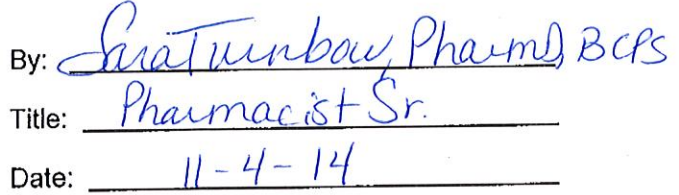 By: Sara Turnbow, PharmD, BCPS
Title: Pharmacist Sr.
Date: 11-4-14